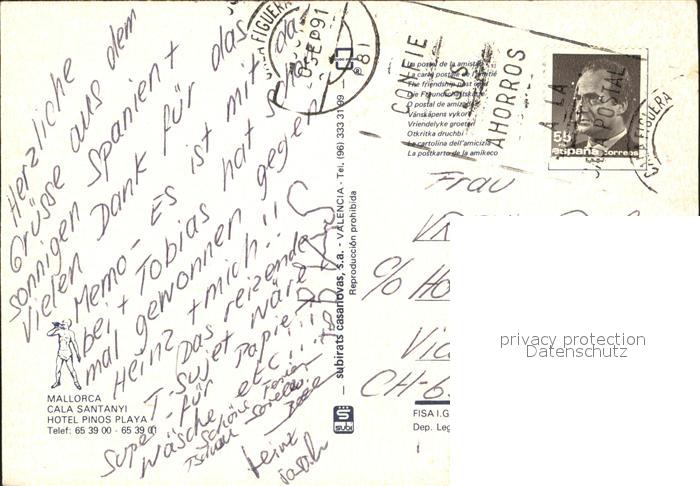 Herzliche
Grüsse aus dem
sonnigen Spanien +
vielen Dank für das
Memo - Es ist mit da-
bei + Tobias hat schon
mal gewonnen gegen
Heinz + mich!!
Das reizende
T-Sujet wäre
super - für Papier-
wäsche etc!!!
Schöne Ferien
TOBIAS
MALLORCA
CALA SANTANYI
HOTEL PINOS PLAYA
Telef: 65 39 00 - 65 39 01
subirats casanovas, s.a. - VALENCIA - Tel. (96) 333 31 99
Reproducción prohibida
SUBI
81
SEP 91
FIGUERA
CONFIE
SUS
AHORROS
A LA
POSTAL
La postal de la amistad
La carte postale de l'amitié
The friendship post card
Die Freundschaftskarte
O postal de amizade
Vänskapens vykort
Vriendelyke groeten
Otkritka druchbi
La cartolina dell'amicizia
La postkarto de la amikeco
55
españa correos
FIGUERA
Frau
c/o Ho
CH-6
FISA I.G
Dep. Leg
privacy protection
Datenschutz